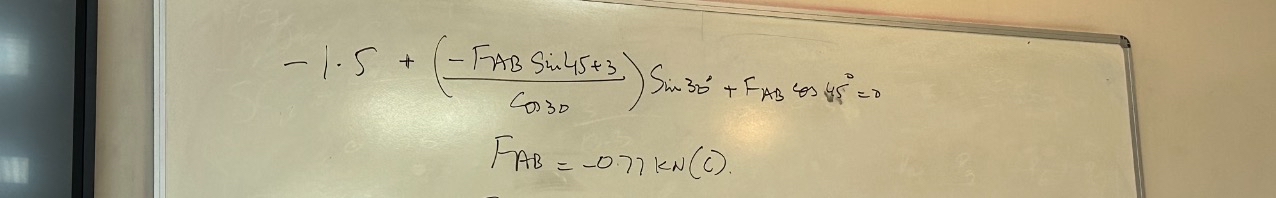 - 1.5 + (-FAB Sin45+3 / Cos30) Sin30° + FAB cos 45° = 0
FAB = -0.77 KN (C).